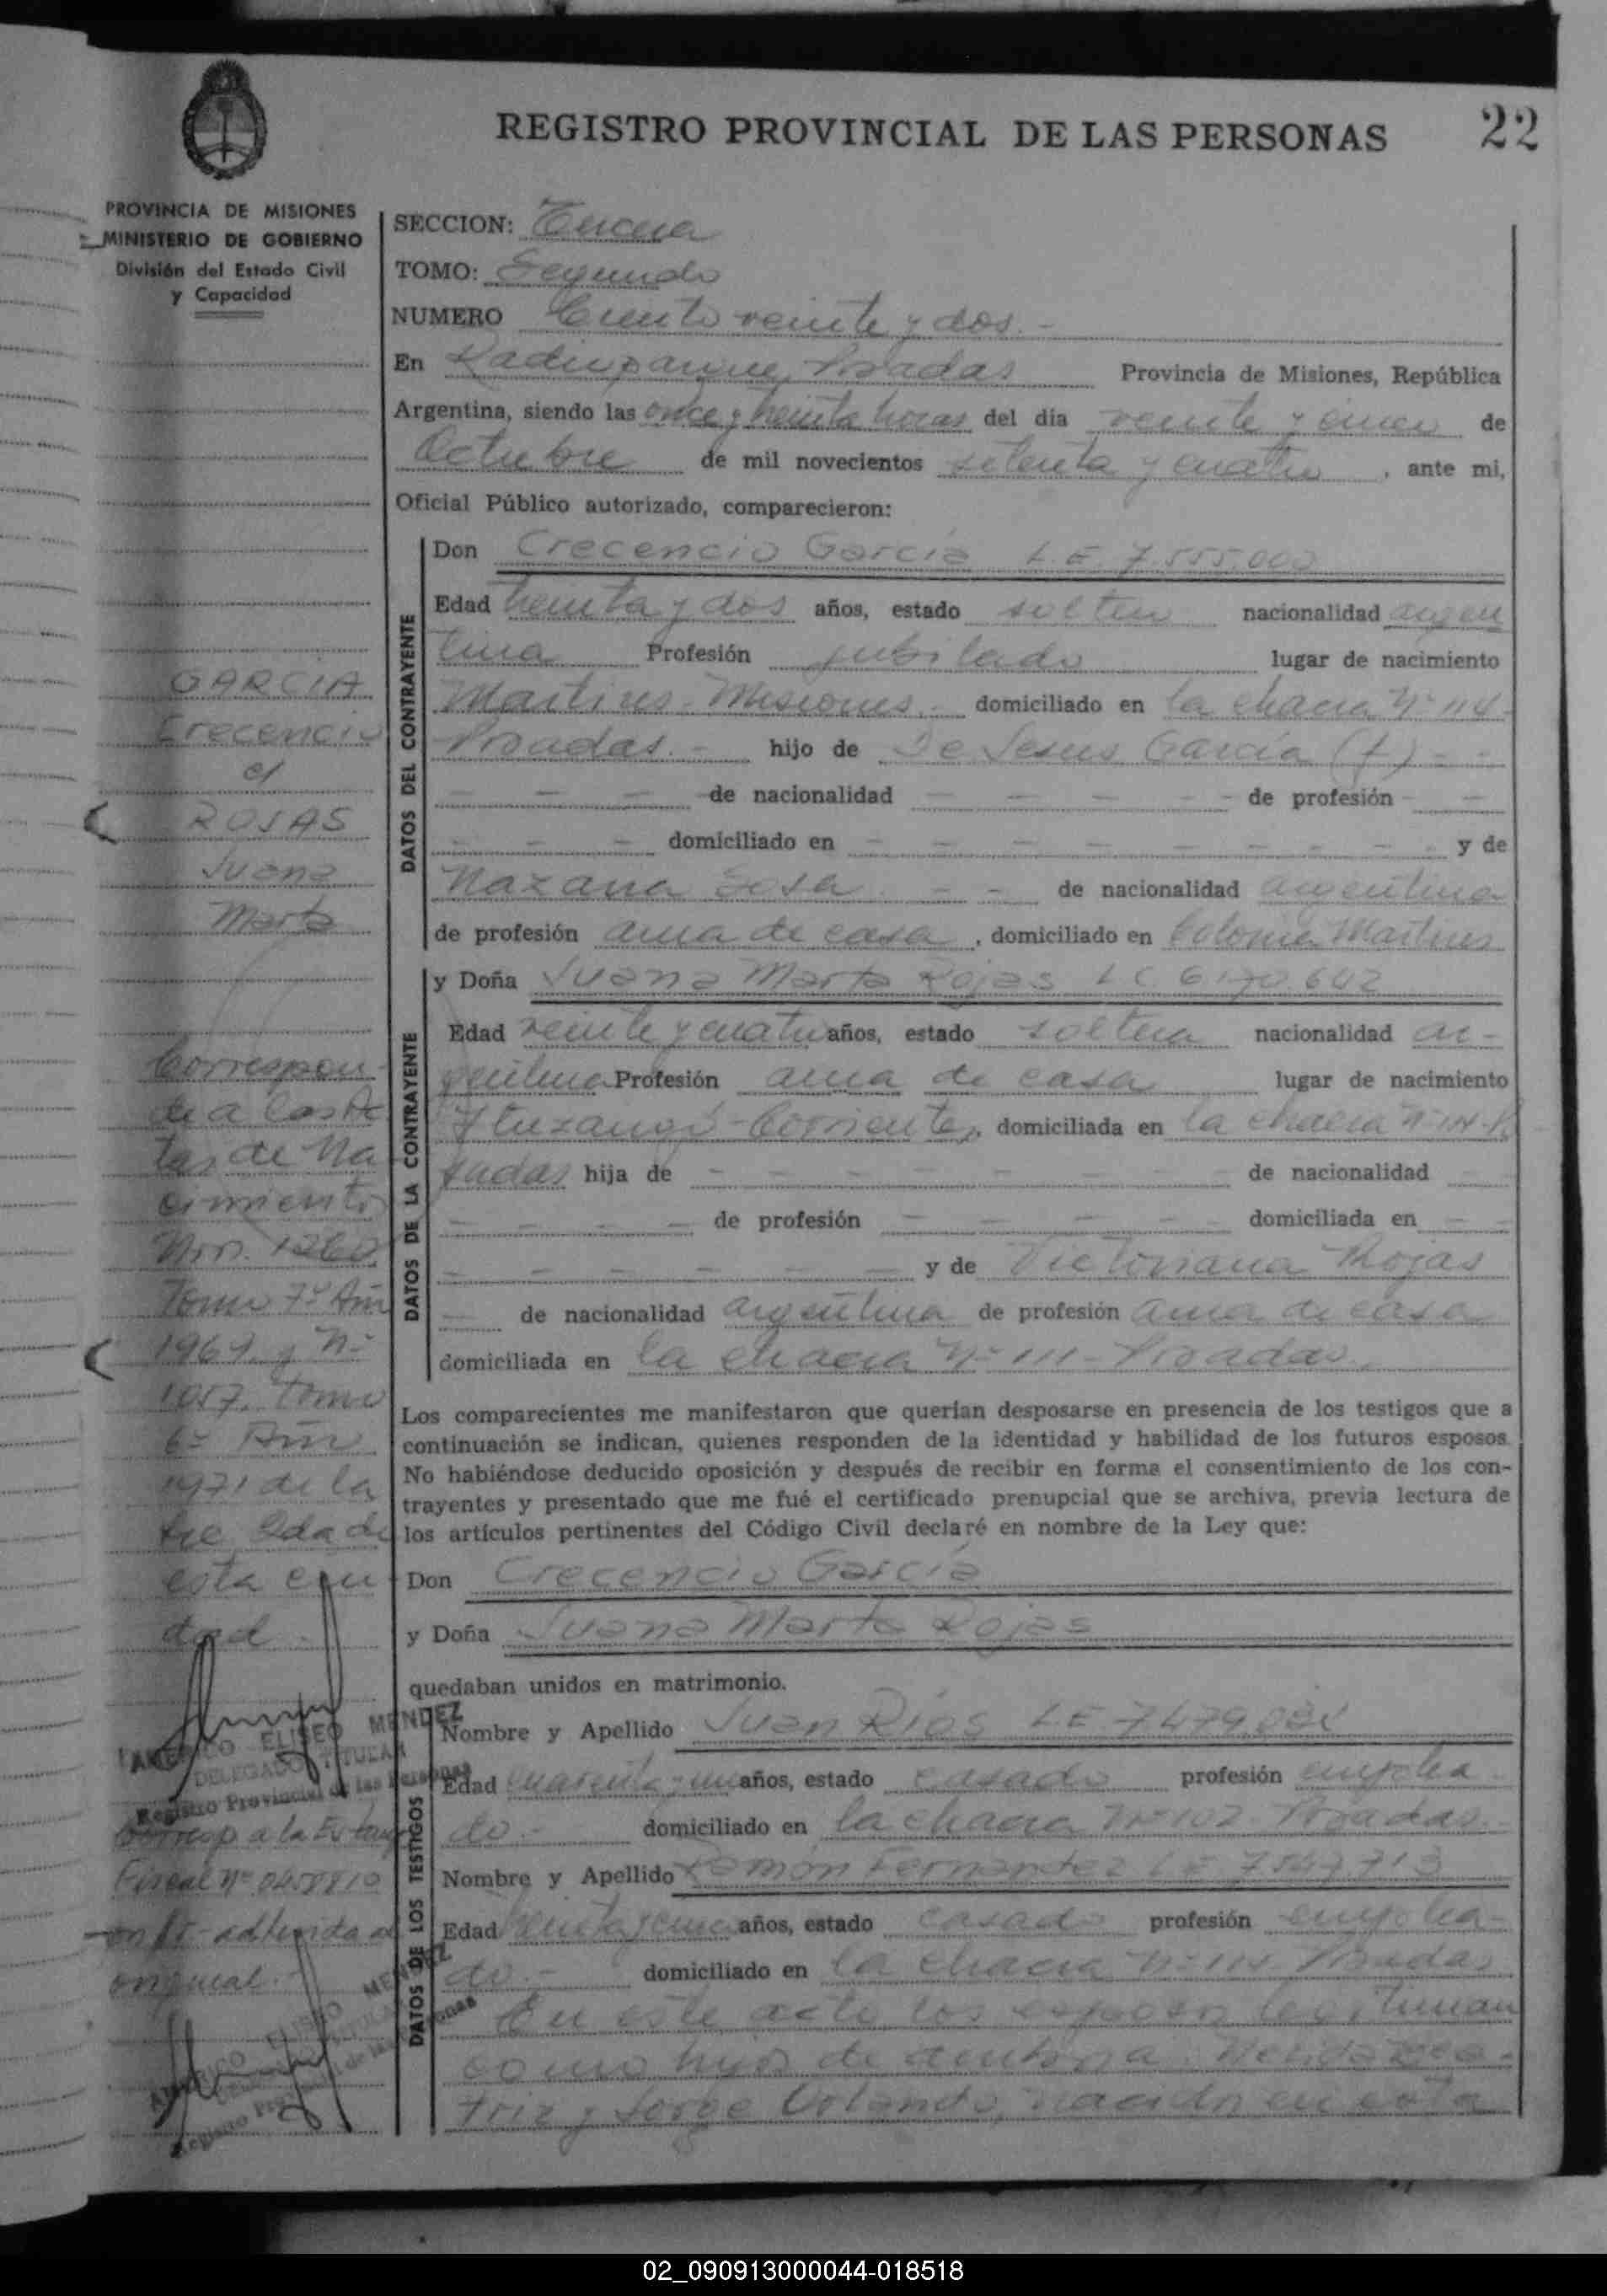 REGISTRO PROVINCIAL DE LAS PERSONAS 22
PROVINCIA DE MISIONES
MINISTERIO DE GOBIERNO
División del Estado Civil
y Capacidad
SECCION: Tercera
TOMO: Segundo
NUMERO Ciento veinte y dos.-
En Posadas Provincia de Misiones, República
Argentina, siendo las once y treinta horas del día veinte y cinco de
Octubre de mil novecientos setenta y cuatro, ante mi,
Oficial Público autorizado, comparecieron:
DATOS DEL CONTRAYENTE
Don Crecencio García L.E. 7.555.000
Edad treinta y dos años, estado soltero nacionalidad argen
tina Profesión jubilado lugar de nacimiento
Martires - Misiones.- domiciliado en la chacra Nº 114-
Posadas.- hijo de De Jesus García (f) - -
- - - de nacionalidad - - - - - de profesión - -
- - - domiciliado en - - - - - - - - y de
Nazaria Sosa. - - de nacionalidad argentina
de profesión ama de casa, domiciliado en Colonia Martires
DATOS DE LA CONTRAYENTE
y Doña Juana Marta Rojas L.C. 6.170.642
Edad veinte y cuatro años, estado soltera nacionalidad ar-
gentina Profesión ama de casa lugar de nacimiento
Ituzaingó - Corrientes, domiciliada en la chacra Nº 114-Po
sadas hija de - - - - - - - de nacionalidad -
- - - - de profesión - - - - domiciliada en - -
- - - - - - y de Victoriana Rojas
- de nacionalidad argentina de profesión ama de casa
domiciliada en la chacra Nº 111 - Posadas.
Los comparecientes me manifestaron que querían desposarse en presencia de los testigos que a
continuación se indican, quienes responden de la identidad y habilidad de los futuros esposos.
No habiéndose deducido oposición y después de recibir en forma el consentimiento de los con-
trayentes y presentado que me fué el certificado prenupcial que se archiva, previa lectura de
los artículos pertinentes del Código Civil declaré en nombre de la Ley que:
Don Crecencio García
y Doña Juana Marta Rojas
quedaban unidos en matrimonio.
DATOS DE LOS TESTIGOS
Nombre y Apellido Juan Ríos L.E.
Edad cuarenta y un años, estado casado profesión emplea-
do.- domiciliado en la chacra Nº 102 - Posadas.-
Nombre y Apellido Ramón Fernandez L.E. 7547713
Edad años, estado casado profesión emplea-
do.- domiciliado en la chacra Nº Posadas
En este acto los esposos legitiman
como hijos de a
triz y Jorge Orlando, nacidos en esta
GARCIA
Crecencio
c/
ROJAS
Juana
Marta
Correspon-
de a las Ac
tas de Na
cimiento
Nros. 1260
Tomo 7º Año
1969 y Nº
1057. Tomo
6º Año
1971 de la
esta ciu
dad.
AMERICO ELISEO MENDEZ
DELEGADO TITULAR
Registro Provincial de las Personas
Corresp. a la Estamp.
Fiscal Nº 0458810
adherida al
original.-
AMERICO ELISEO MENDEZ
DELEGADO TITULAR
Registro Provincial de las Personas
02_090913000044-018518